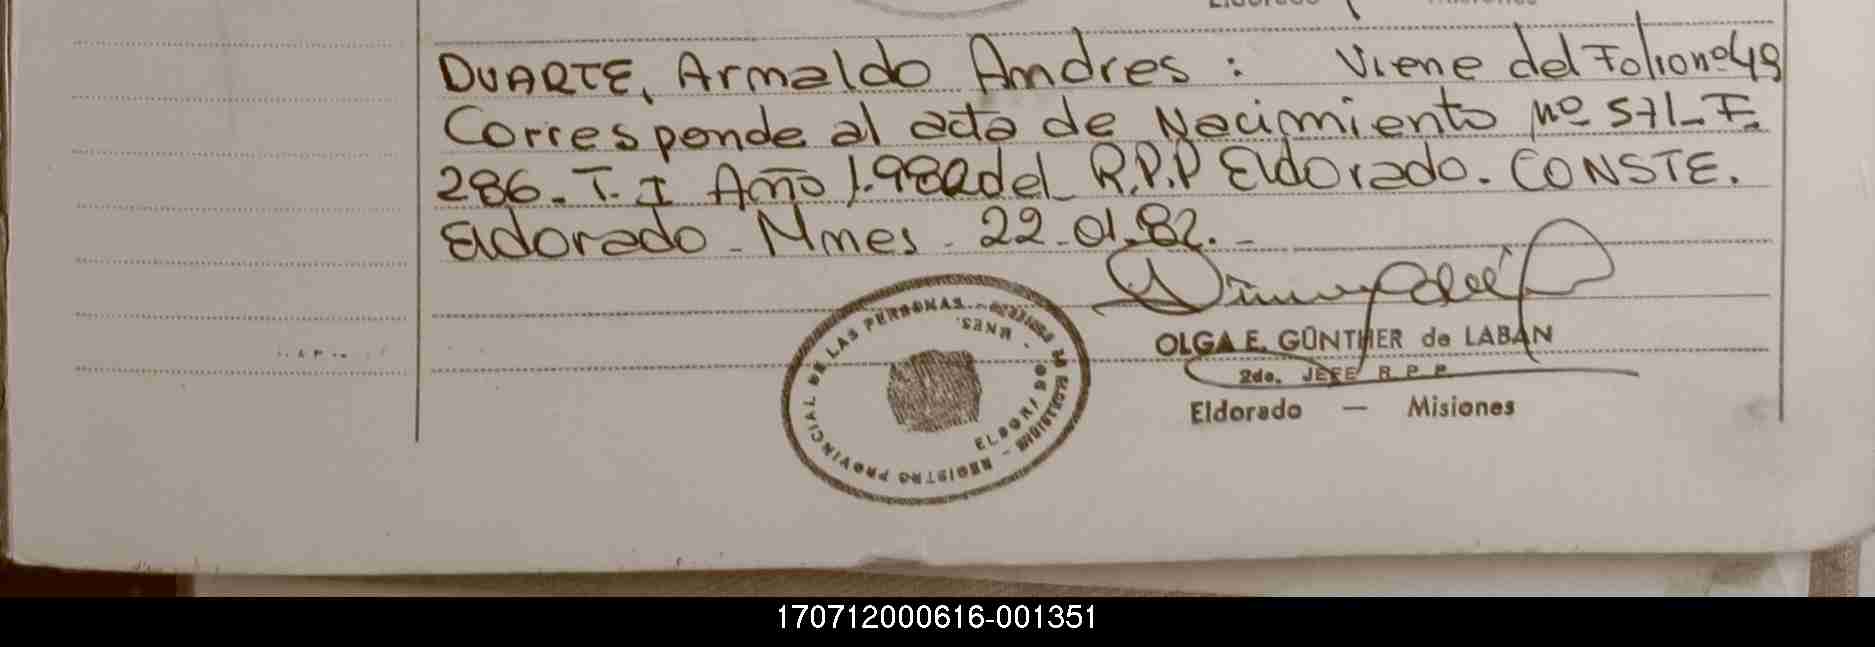 DUARTE, Arnaldo Andres : Viene del Folio nº 49
Corresponde al acta de Nacimiento nº 571_F.
286_ T. I Año 1.982 del R.P.P Eldorado. CONSTE.
Eldorado _ Mnes _ 22_01_82._
REGISTRO PROVINCIAL DE LAS PERSONAS
OLGA E. GÜNTHER de LABAN
2do. JEFE R. P. P.
Eldorado — Misiones
170712000616-001351